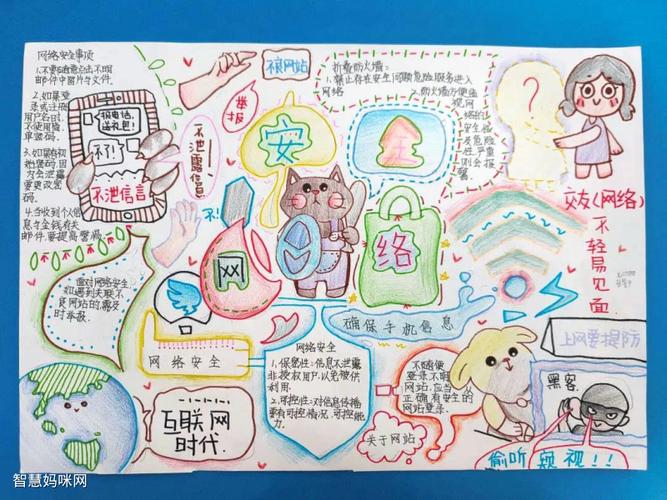 网络安全事项
1.不要随意点击不明
邮件中图片与文件.
2.如果登
录或注册
用户名时,
不使用简
单密码.
3.如果有初
始密码,因
为会泄露
需要改密
码.
4.当收到个人信
息与金钱有关
邮件,要提高警惕
报电话,
送礼包!
不了!
不泄信言
不良网站
举报
不泄露信息
不!
安
全
网
络
折叠防火墙:
1.禁止存在安全问题危险服务进入
网络
2.防火墙方便监
视网
络的
安全
及危
险性,
严重
则会
报警.
?
交友(网络)
不轻易见面
面对网络安全,
如遇到关联不
良网站时,需及
时举报.
网络安全
确保手机信息
网络安全
1.保密性:信息不泄露
非授权用户,以免被供
利用.
2.可控性:对信息传播
要有可控情况,可控能
力.
不随便
登录不明
网站,应当
正确有安全的
网站登录.
关于网站
上网要提防
黑客
偷听窥视!!
互联网
时代.
智慧妈咪网